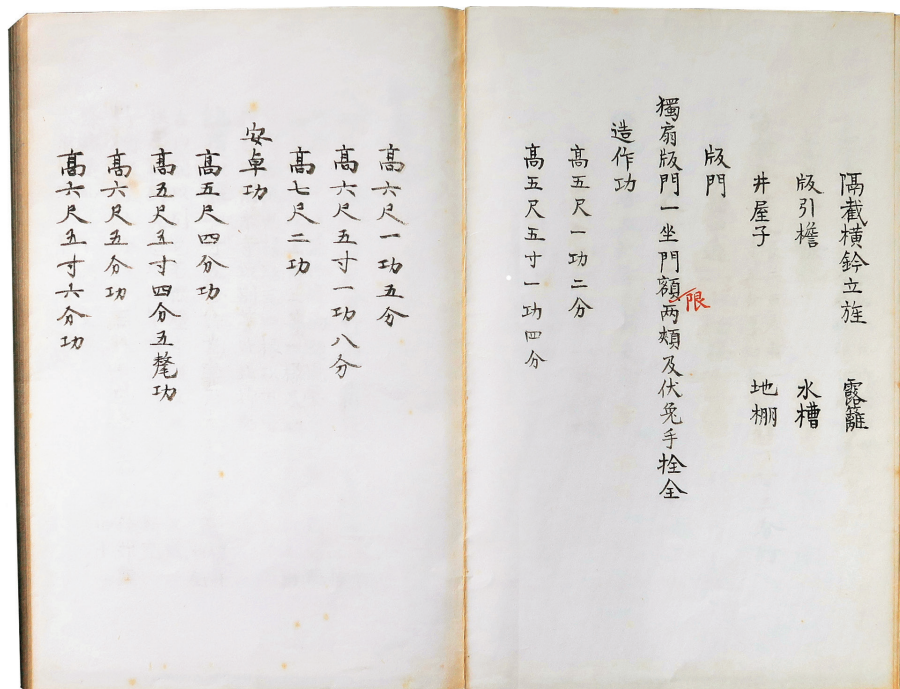 隔截橫鈐立旌　露籬
版引檐　水槽
井屋子　地棚
版門
獨扇版門一坐門額限两頰及伏兔手拴全
造作功
高五尺一功二分
高五尺五寸一功四分
高六尺一功五分
高六尺五寸一功八分
高七尺二功
安卓功
高五尺四分功
高五尺五寸四分五氂功
高六尺五分功
高六尺五寸六分功